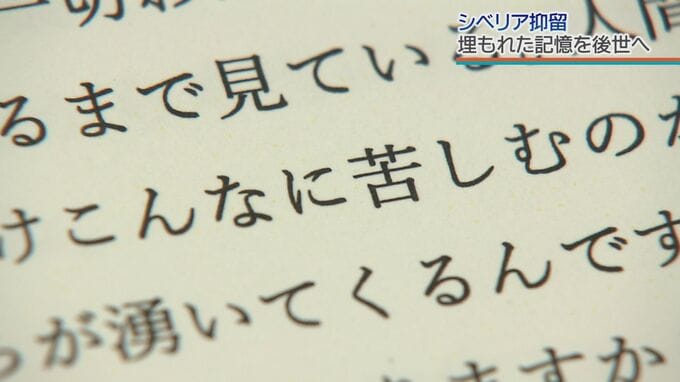 シベリア抑留
埋もれた記憶を後世へ
るまで見てい
人間
けこんなに苦しむのか
が湧いてくるんです
ますか